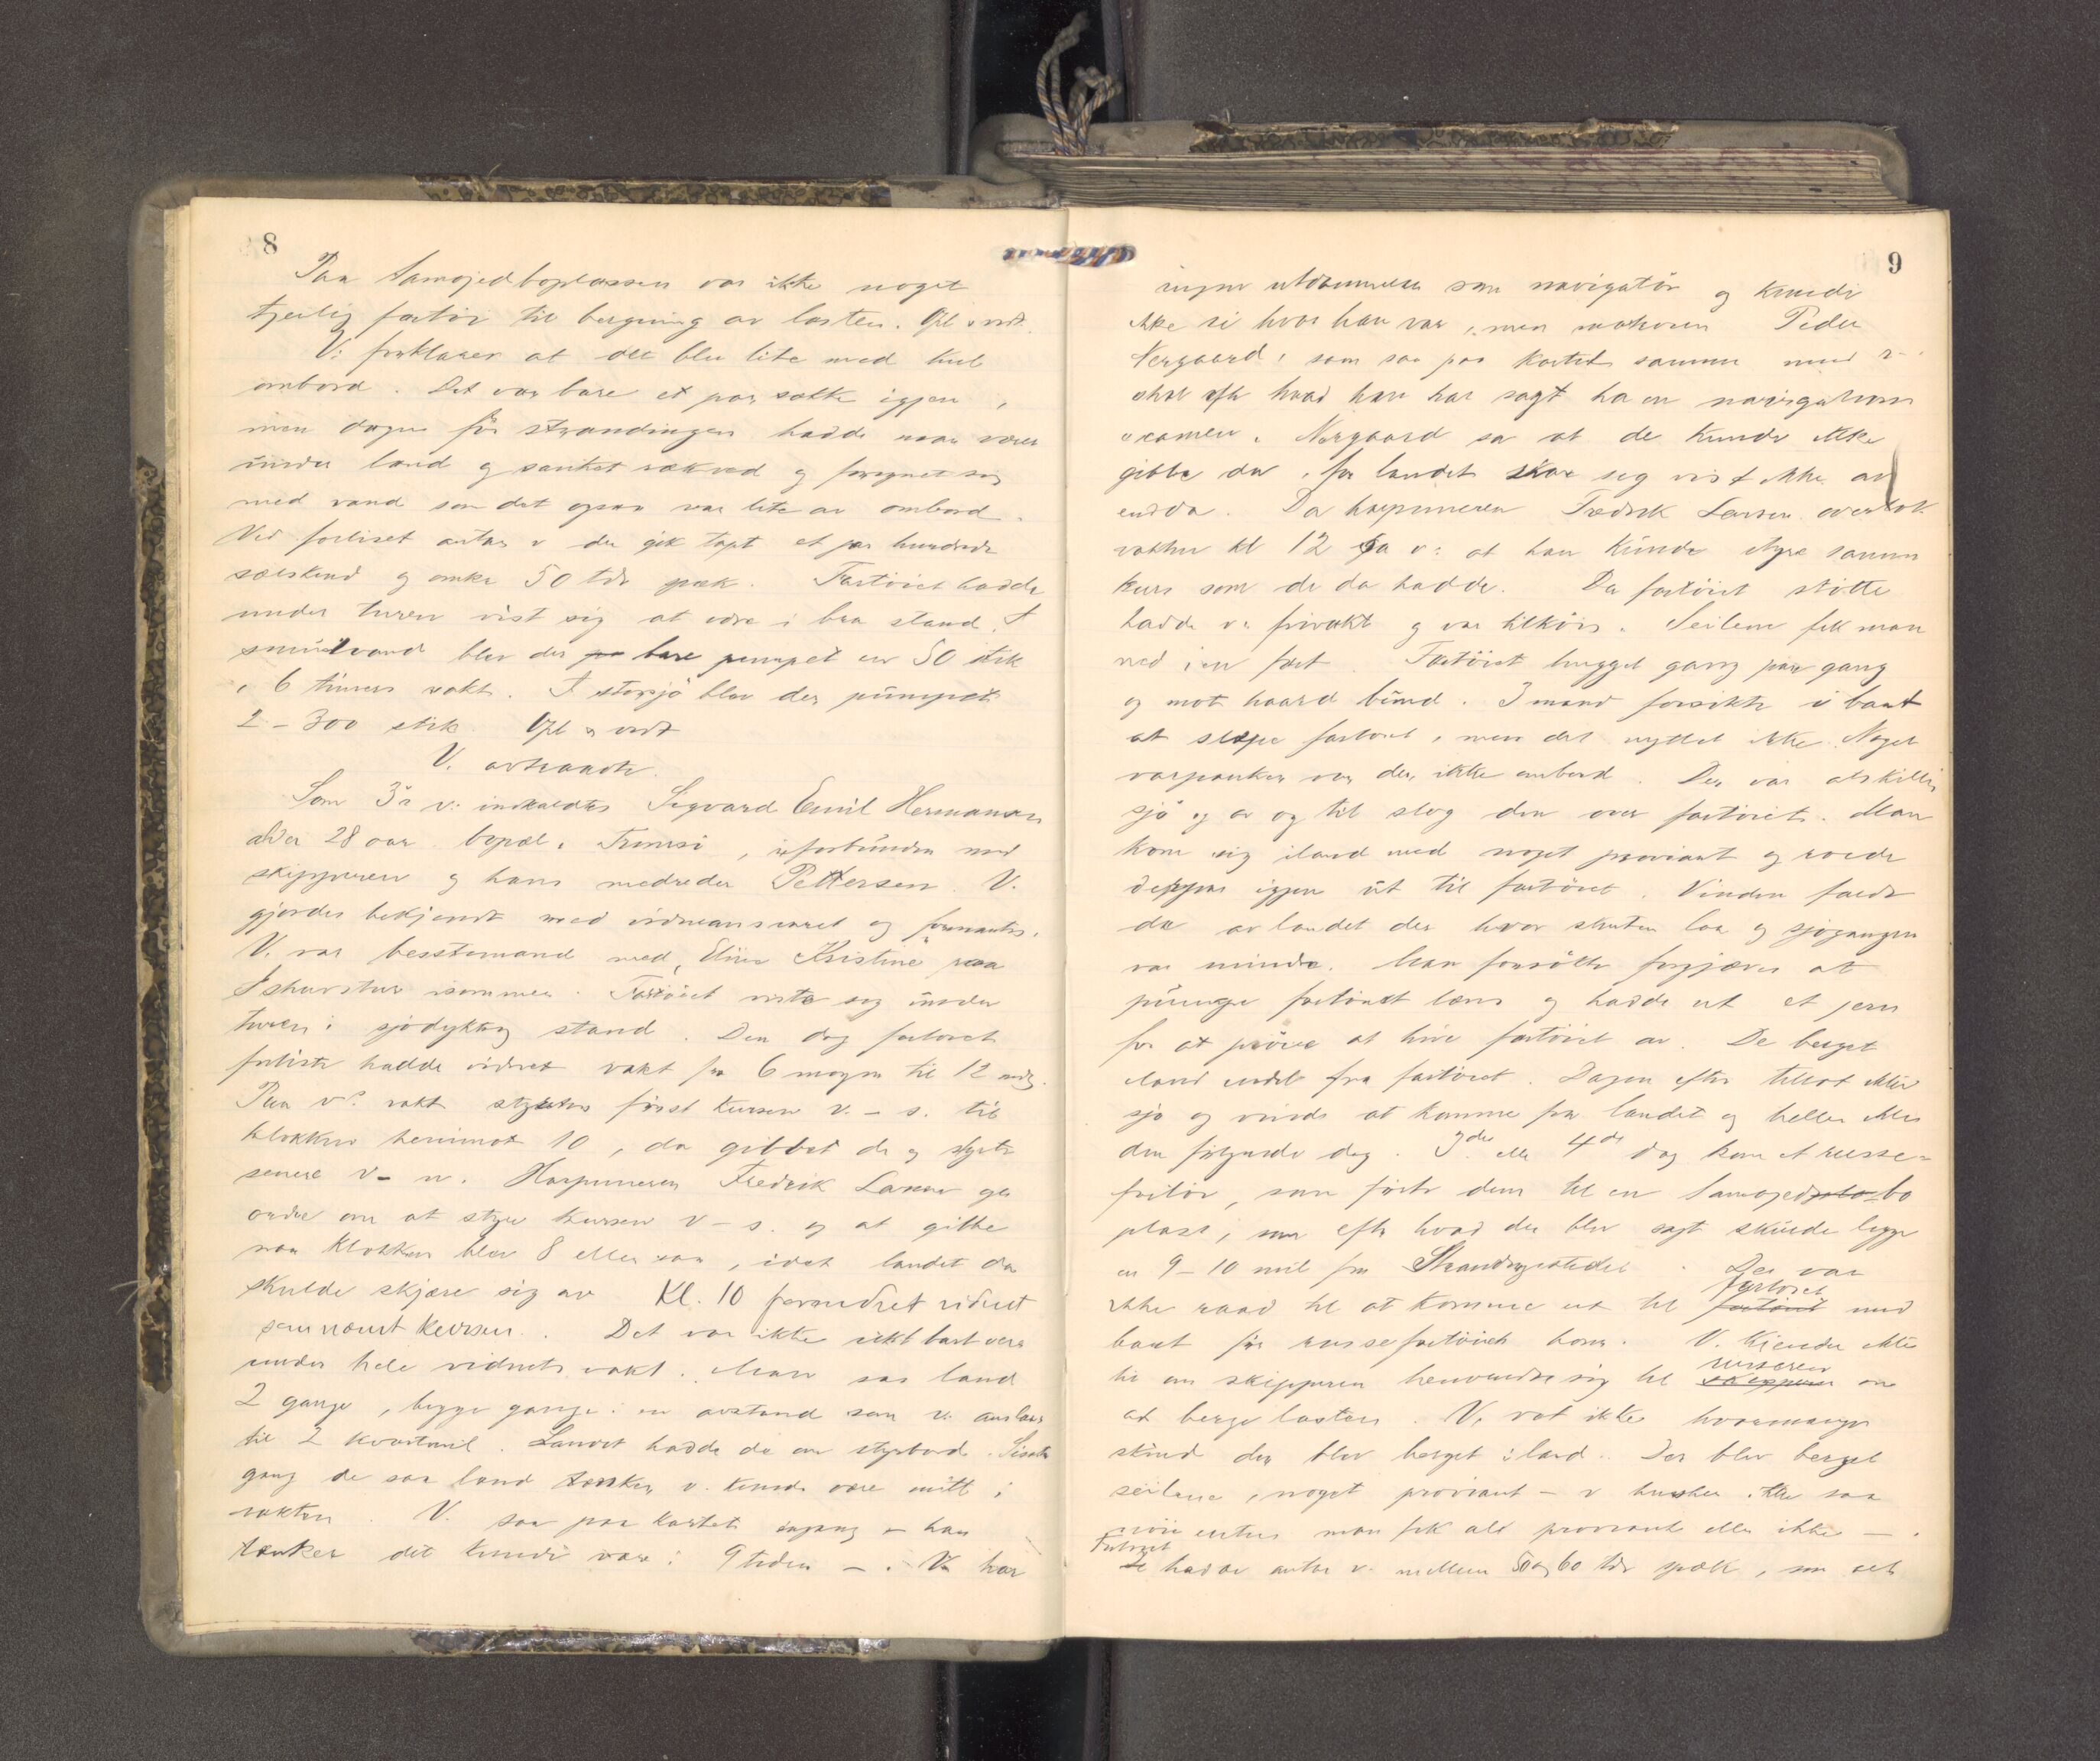 8
Paa Samojedboplassen var ikke noget
tjenlig fartöi til bergning av lasten. Opl. v. vedt.
V. forklarer at det blev lite med kul
ombord. Det var bare et par sække igjen,
men dagen för strandingen hadde man været
under land og sanket rækved og forsynet sig
med vand som det ogsaa var lite av ombord.
Ved forliset antar v. der gik tapt et par hundrede
sælskind og omkr. 50 tdr spæk. Fartöiet hadde
under turen vist sig at være i bra stand. I
smult vand blev der bare pumpet en 50 stik
i 6 timers vakt. I storsjö blev der pumpet
2 - 300 stik. Opl. v. vedt
V. avtraadte.
Som 3. v. indkaldtes Sigvard Emil Hermansen
alder 28 aar bopæl i Tromsö, uforbunden med
skipperen og hans medreder Pettersen. V.
gjordes bekjendt med vidneansvaret og formantes.
V. var besstemand med "Eline Kristine" paa
Ishavstur isommer. Fartöiet viste sig under
turen i sjödyktig stand. Den dag fartöiet
forliste hadde vidnet vakt fra 6 morgen til 12 midg.
Paa v's vakt styrtes först kursen v. - s. til
klokken henimot 10, da gibbet de og styrte
senere v - n. Harpuneren Fredrik Larsen ga
ordre om at styre kursen v - s. og at gibbe
naar klokken blev 8 eller saa, idet landet da
skulde skjære sig av Kl. 10 forandret vidnet
som nævnt kursen. Det var ikke sikt bart veir
under hele vidnets vakt. Man saa land
2 gange, begge gange i en avstand som v. anslaar
til 2 kvartmil. Landet hadde de om styrbord. Sidste
gang de saa land tænker v. kunde være midt i
vakten. V. saa paa kartet engang - han
tænker det kunde være i 9 tiden -. V. har
9
ingen utdannelse som navigatör og kunde
ikke si hvor han var, men matrosen Peder
Nergaard, som saa paa kartet sammen med v.
skal efter hvad han har sagt ha en navigations
examen. Nergaard sa at de kunde ikke
gibbe da, for landet skar seg vist ikke av
endda. Da harpuneren Fredrik Larsen overtok
vakten kl 12 sa v. at han kunde styre samme
kurs som de da hadde. Da fartöiet stötte
hadde v. frivakt og var tilköis. Seilene fik man
ned i en fart. Fartöiet hugget gang paa gang
og mot haard bund. 3 mand forsökte i baat
at slæpe fartöiet, men det nyttet ikke. Noget
varpanker var der ikke ombord. Der var atskillig
sjö og av og til slog den over fartöiet. Man
kom sig iland med noget proviant og rodde
derpaa igjen ut til fartöiet. Vinden faldt
da av landet der hvor skuten laa og sjögangen
var mindre. Man forsökte forgjæves at
pumpe fartöiet læns og hadde ut et jern
for at pröve at hive fartöiet av. De berget
iland endel fra fartöiet. Dagen efter tillot ikke
sjö og vind at komme fra landet og heller ikke
den fölgende dag. 3de eller 4de dag kom et russe-
fartöi, som förte dem til en Samojedbo
plass, som efter hvad der blev sagt skulde ligge
en 9 - 10 mil fra Strandingsstedet. Der var
ikke raad til at komme ut til fartöiet med
baat för russefartöiet kom. V. kjender ikke
til om skipperen henvendte sig til russeren om
at berge lasten. V. vet ikke hvormange
skind der blev berget iland. Der blev berget
seilene, noget proviant - v husker ikke saa
nöie enten man fik alt proviant eller ikke -.
Fartöiet hadde antar v. mellem 50 og 60 tdr spæk, som alt